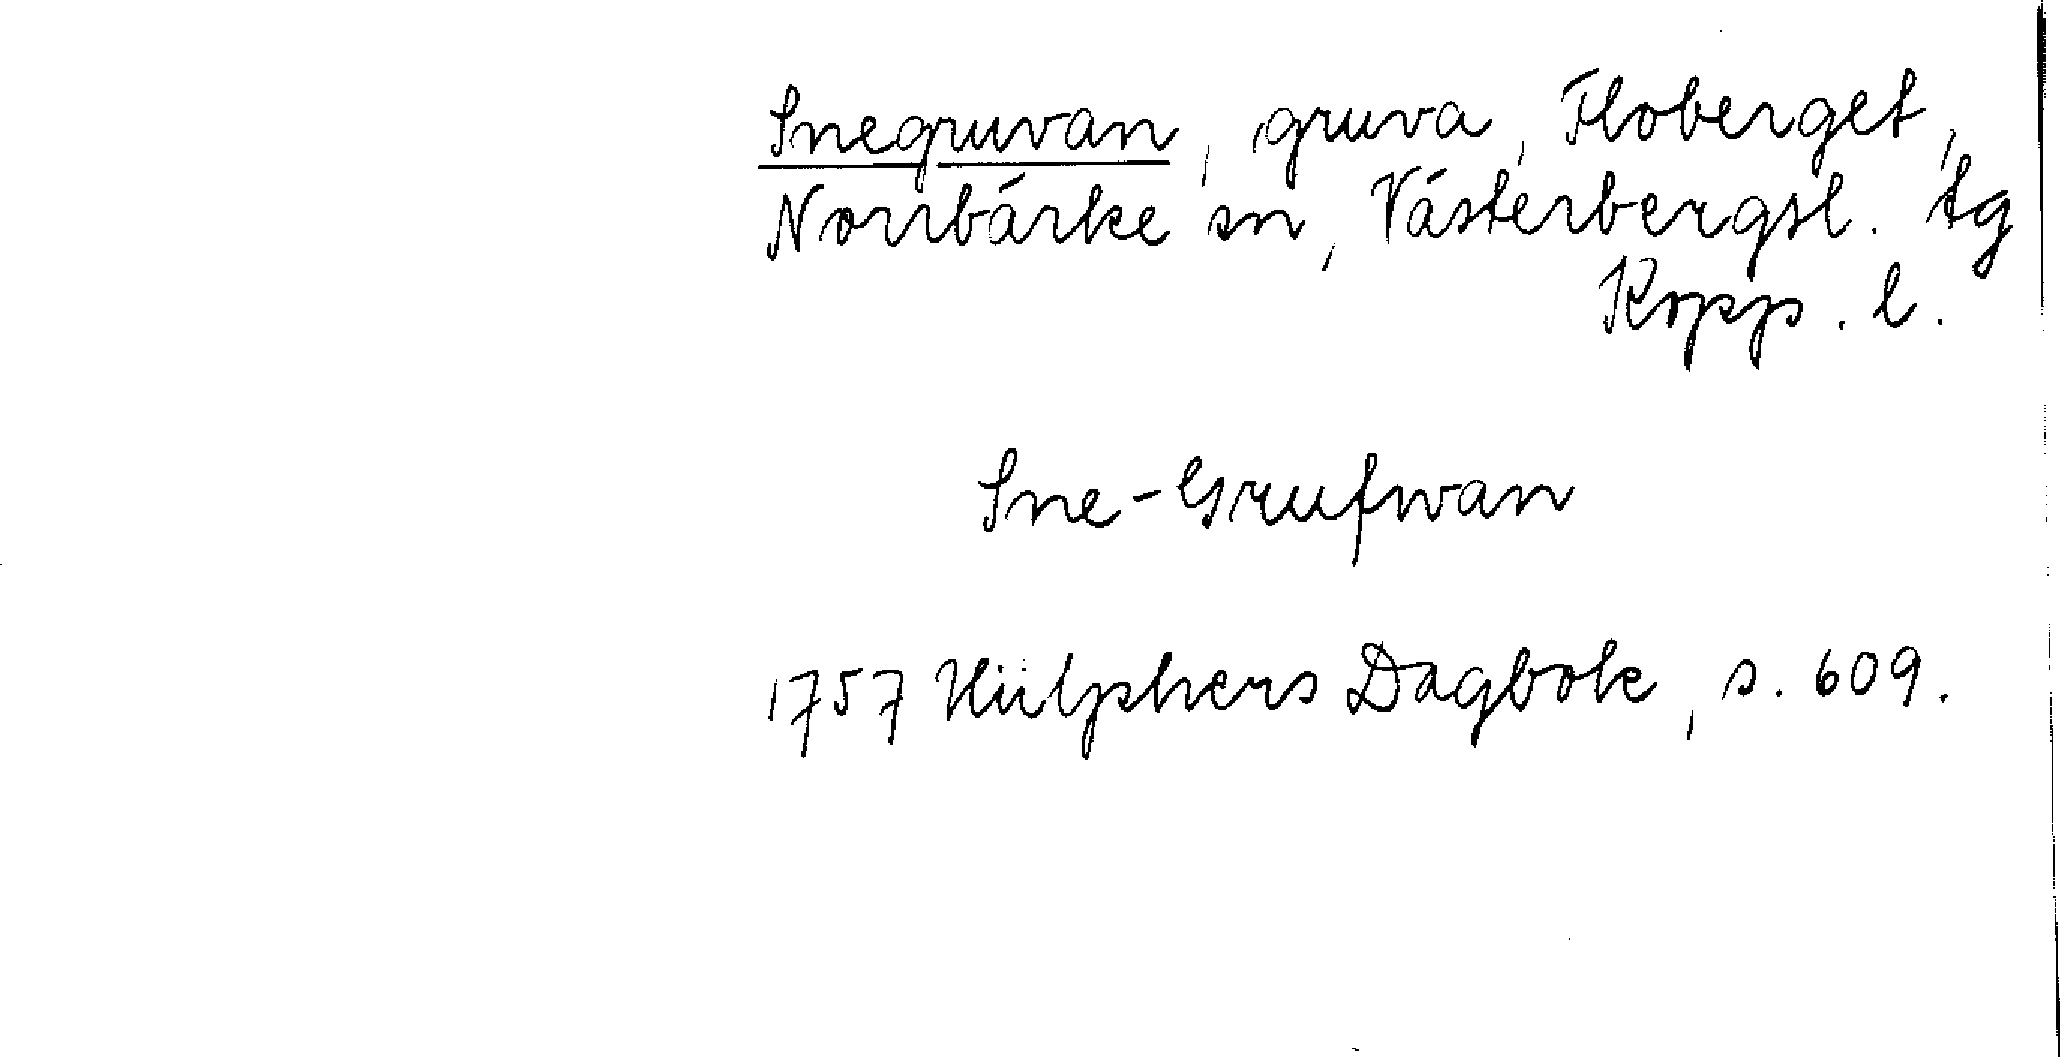 Snegruvan, gruva, Floberget,
Norrbärke sn, Västerbergsl. tg
Kopp. l.
Sne-Grufwan
1757 Hülphers Dagbok, s. 609.